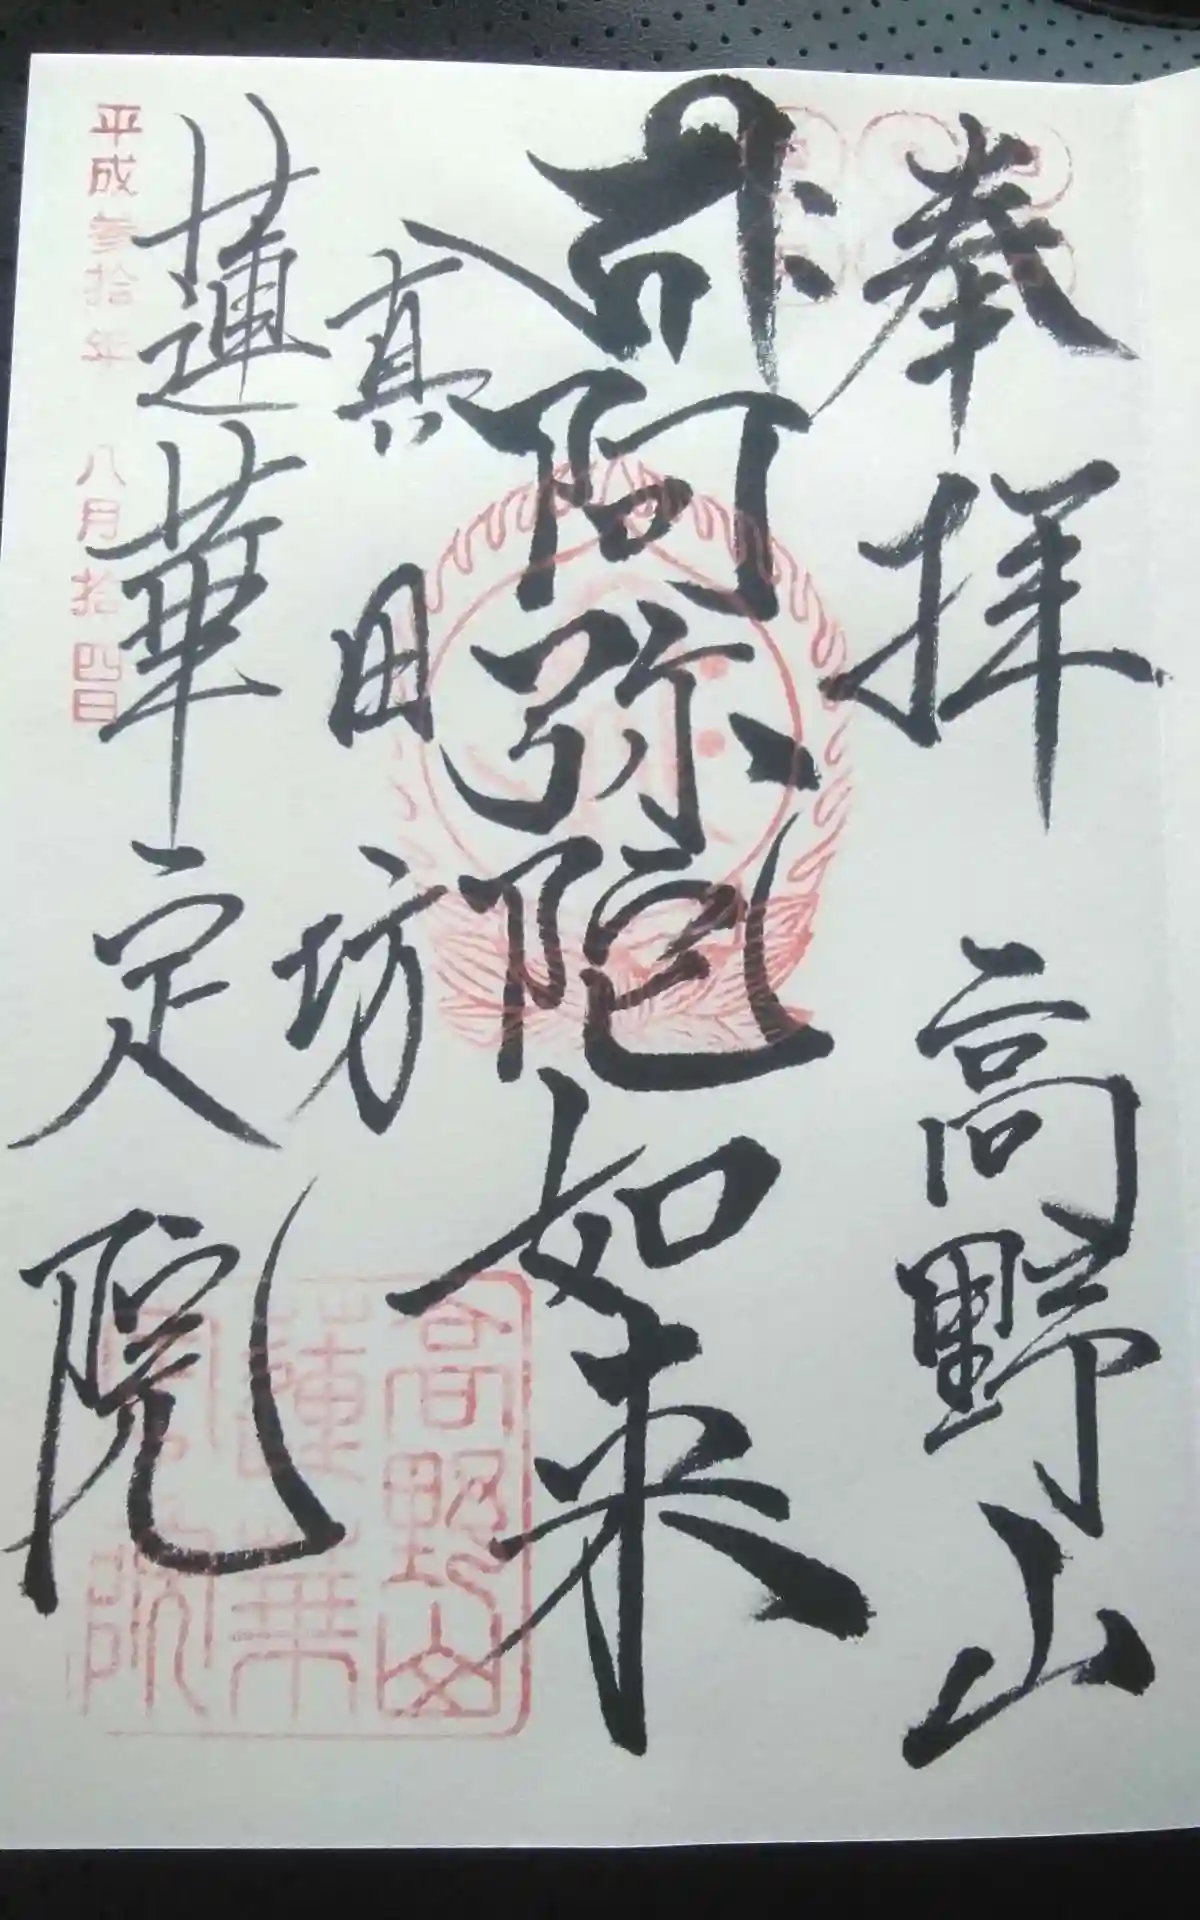 奉拝 高野山
阿弥陀如来
真田坊
蓮華定院
平成参拾年 八月拾四日
高野山
蓮華
定院